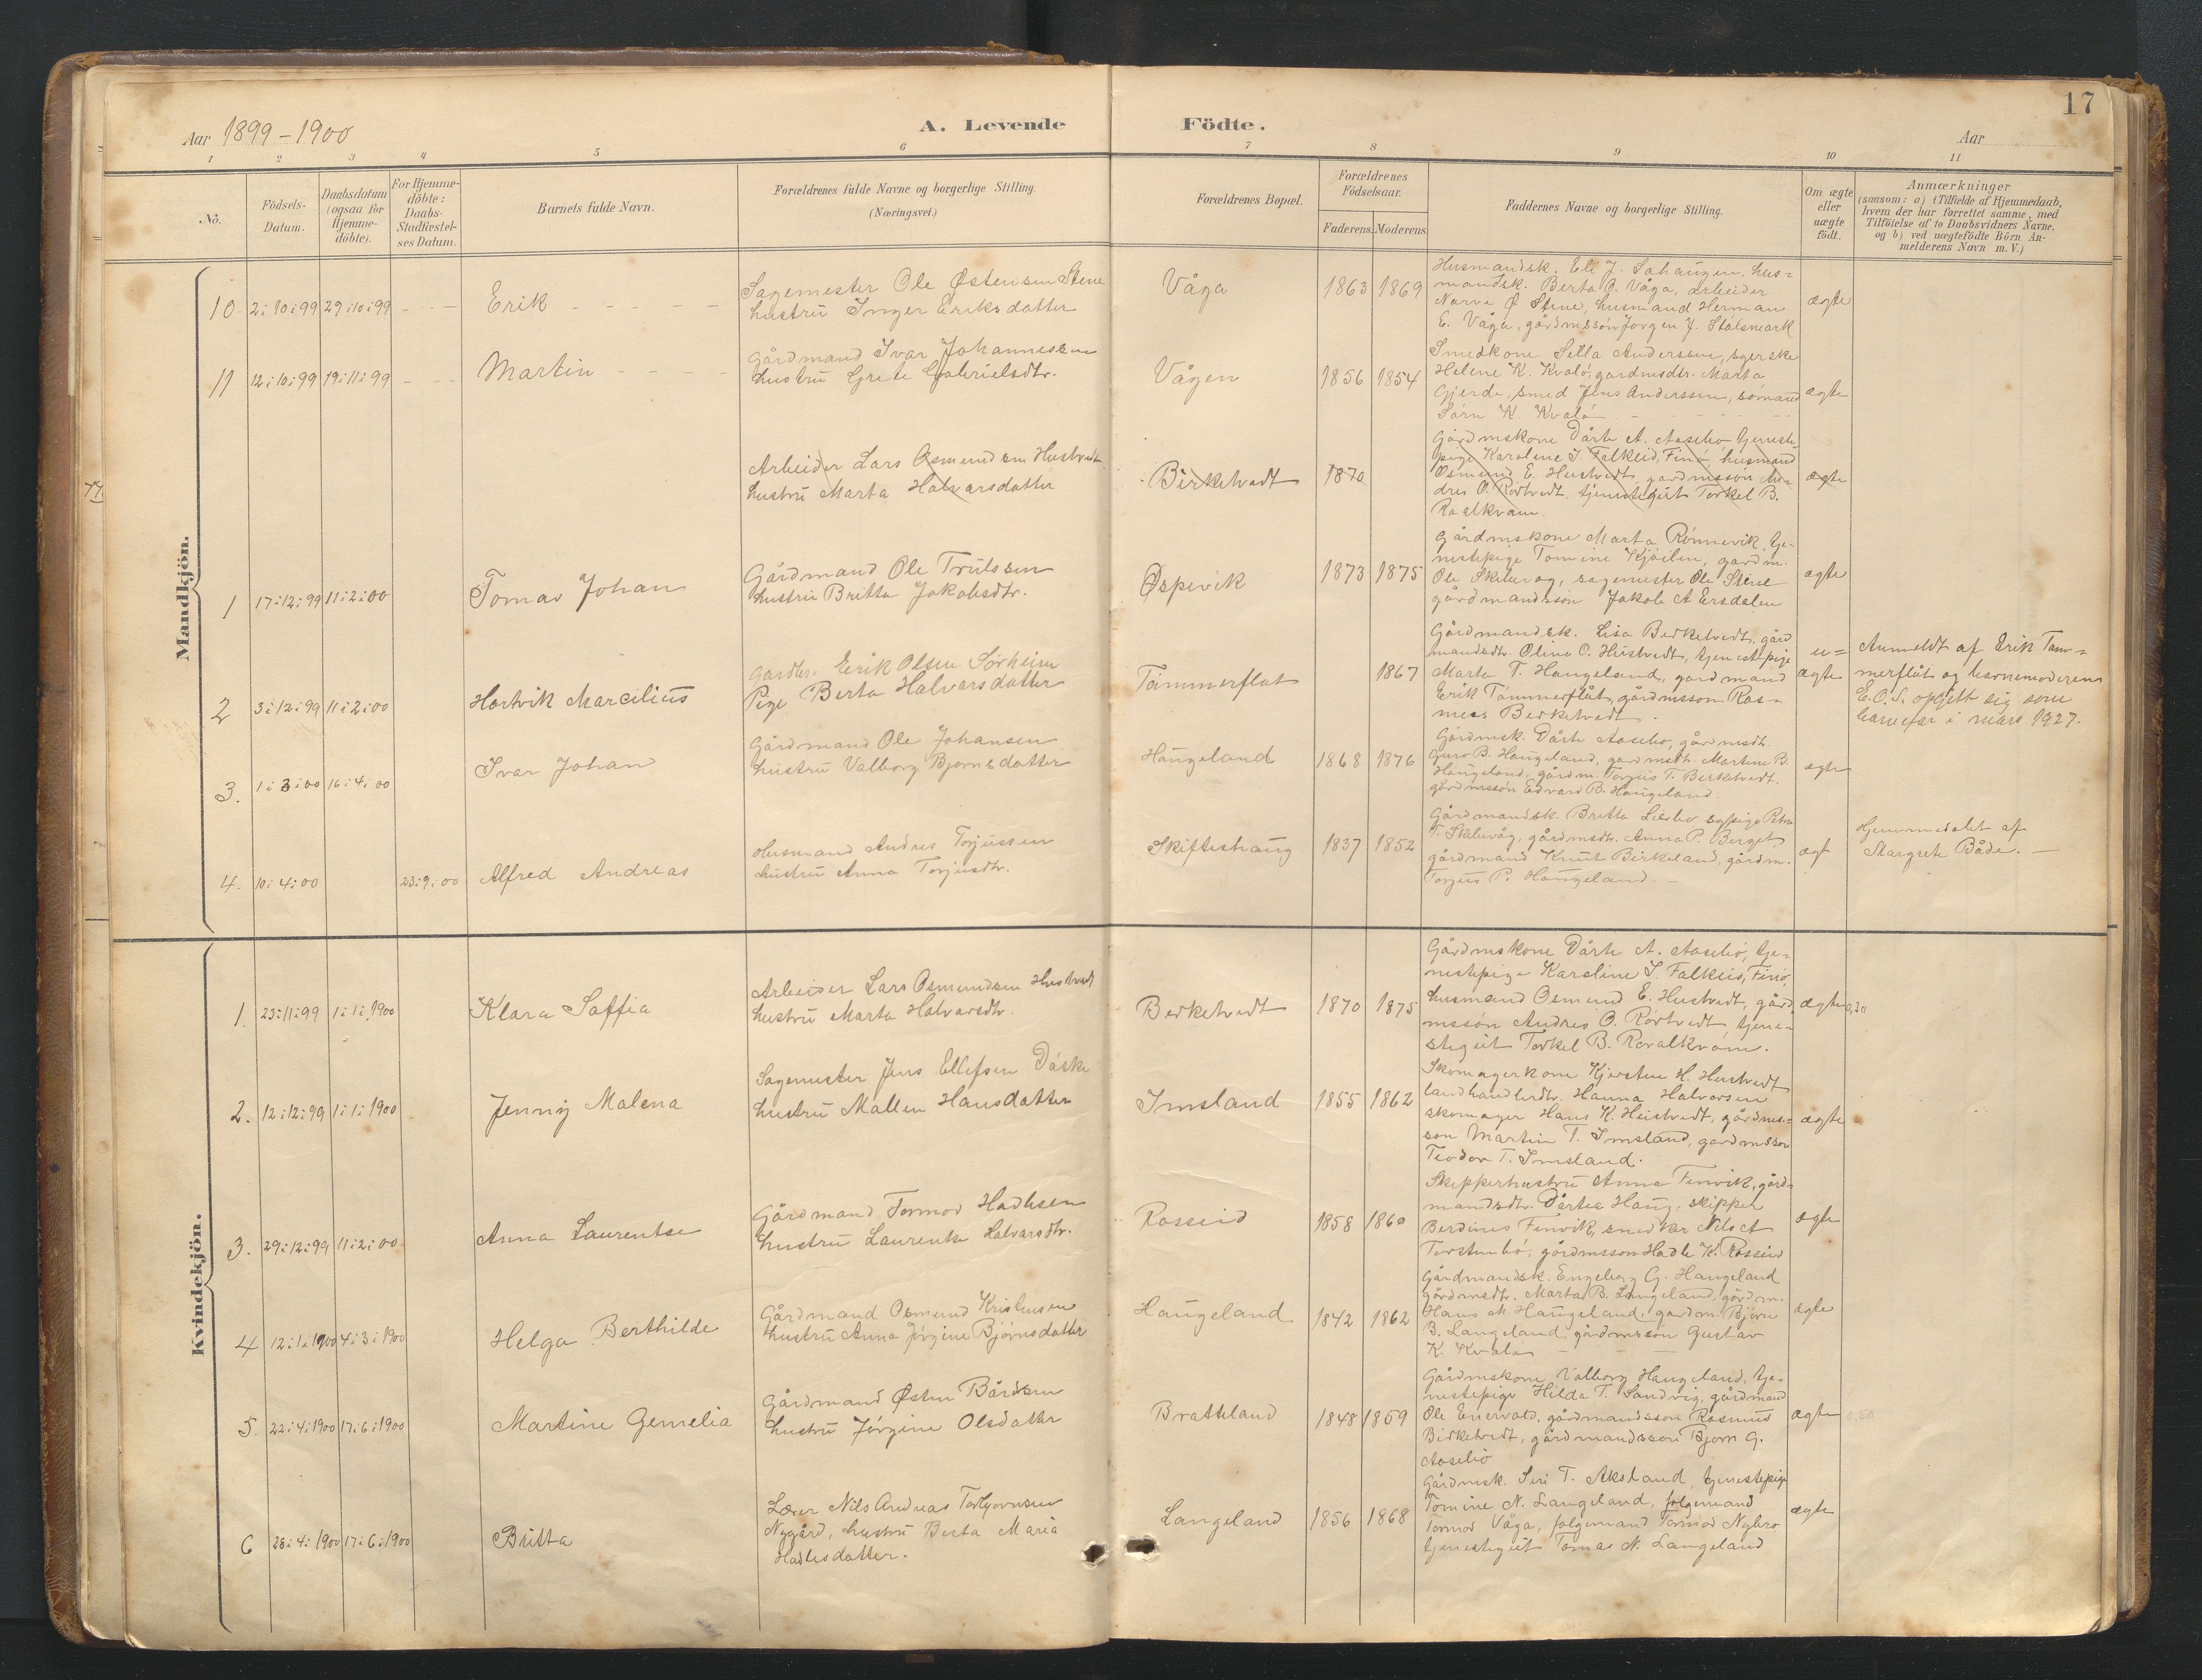 17
Aar 1899-1900
A. Levende Födte.
Aar
1 2 3 4 5 6 7 8 9 10 11
No.
Födsels-
Datum.
Daabsdatum
(ogsaa for
Hjemme-
döbte).
For Hjemme-
döbte:
Daabs-
Stadfæstel-
ses Datum.
Barnets fulde Navn.
Forældrenes fulde Navne og borgerlige Stilling.
(Næringsvei.)
Forældrenes Bopæl.
Forældrenes
Födselsaar.
Faderens. Moderens.
Faddernes Navne og borgerlige Stilling.
Om ægte
eller
uægte
födt.
Anmærkninger
(saasom: a) i Tilfælde af Hjemmedaab,
hvem der har forrettet samme, med
Tilföielse af to Daabsvidners Navne.
og b) ved uægtefödte Börn An-
melderens Navn m. V.)
Mandkjön.
10. 2:10:99 29:10:99 - - -
Erik - - - -
Sagemester Ole Østensen Stene
hustru Inger Eriksdatter
Våga
1863 1869
Husmandsk. Eli J. Sahaugen, hus=
mandsk. Berta O. Våga, arbeider
Narve Ø Stene, husmand Herman
E. Våga, gårdmssön Jørgen J. Stålesmark
ægte
11 12:10:99 19:11:99 - - -
Martin - - - -
Gårdmand Ivar Johannessen
hustru Grete Gabrielsdtr.
Vågen
1856 1854
Smedkone Sella Anderssen, syerske
Helene K. Kvalö, gardmsdtr. Marta
Gjerde, smed Jens Anderssen,
Sörn K. Kvalö - - - -
ægte
Arbeider Lars Osmundsen Hustvedt
hustru Marta Halvarsdatter
Birketvedt
1870
Gårdmskone Dårte A. Aasebö tjeneste-
pige Karoline J. Falkeid, Finö, husmand
Osmund E. Hustvedt, gårdmssön An-
dres O. Rörtvedt, tjenestegut Torkel B.
Roalkvam.
ægte
1 17:12:99 11:2:00
Tomas Johan
Gårdmand Ole Trulssen
hustru Britta Jakobsdtr.
Øspevik
1873 1875
Gårdmskone Marta Rönnevik, tje-
nestepige Tomine Kjöilen, gardm.
Ole Skeluvog, sagemester Ole Stene
gårdmandssön Jakob A Ersdalen
ægte
2 3:12:99 11:2:00
Hartvik Marcilius
Gardbr. Erik Olsen Sørheim
Pige Berta Halvarsdatter
Tømmerflat
1867
Gårdmandsk. Lisa Berketvedt, gård
mandsdtr. Oline O. Hustvedt, tjenestepige
Marta T. Haugeland, gardmand
Erik Tömmerflåt, gårdmsson Ras-
mus Berketvedt.
u=
ægte
Anmeldt af Erik Töm=
merflåt og barnemoderen
E.O.S. opgitt sig som
barnefar i mars 1927.
3. 1:3:00 16:4:00
Ivar Johan
Gårdmand Ole Johansen
hustru Valborg Bjørnsdatter
Haugeland
1868 1876
Gårdmsk. Dårte Aasebö, gårdmsdt
Guro B. Haugeland, gardmsdt. Martine B.
Haugeland, gårdm. Torjus T. Berketvedt.
gårdmssön Edvard B. Haugeland.
ægte
4. 10:4:00 23:9:00
Alfred Andreas
Husmand Andres Torjussen
hustru Anna Torjusdtr.
Skifteshaug
1837 1852
Gårdmandsk. Britta Liesbö sypige
T. Skeluvåg, gårdmsdtr. Anna P. Berget
gårdmand Knut Birkeland, gårdm.
Torjus P. Haugeland. -
ægt
Hjemmedöbt af
Margrete Både. -
Kvindekjön.
1. 23:11:99 1:1:1900
Klara Saffia
Arbeider Lars Osmundsen Hustvedt
hustru Marta Halvarsdtr.
Berketvedt
1870 1875
Gårdmskone Dårte A. Aasebö, tje-
nestepige Karoline J. Falkeid, Finö,
husmand Osmund E. Hustvedt, gård
mssön Andres O. Rörtvedt, tjene-
stegut Torkel B. Roalkvam.
ægte 0,30
2. 12:12:99 1:1:1900
Jenny Malena
Sagemester Jens Ellefsen Dåske
hustru Mallen Hansdatter
Imsland
1855 1862
Skomagerkone Kjersten H. Hustvedt
landhandlerdtr. Hanna Halvorsen
skomager Hans K. Hustvedt, gårdms=
son Martin T. Imsland, gårdmsson
Teodor T. Imsland.
ægte
3. 29:12:99 11:2:00
Anna Laurentse
Gårdmand Tormod Hadlesen
hustru Laurentse Halvarsdtr.
Rosseid
1858 1860
Skipperhustru Anna Fenvik, gård=
mandsdtr. Dårtea Haug, skipper
Berdines Fenvik, snedker Nils A
Torstenbö, gårdmsson Hadle K. Rosseid
ægte
4 12:1:1900 4:3:1900
Helga Berthilde
Gårdmand Osmund Kristensen
hustru Anna Jörgine Bjørnsdatter
Haugeland
1842 1862
Gårdmandsk. Engeborg G. Haugeland
gårdmsdtr. Marta B. Langeland, gårdm.
Hans M. Haugeland, gardm. Bjørn
B. Langeland, gårdmsson Gustav
K. Kvalö - - -
ægte
5. 22:4:1900 17:6:1900
Martine Gemelia
Gårdmand Østen Bårdsen
hustru Jörgine Olsdatter
Bratteland
1848 1859
Gårdmskone Valborg Haugeland, tje-
nestepige Hilda T. Sandvig, gårdmand
Ole Enervold, gårdmandsson Rasmus
Birketvedt, gårdmandsson Bjørn G.
Aasebö
ægte 0,50
6 28:4:1900 17:6:1900
Britta
Lærer Nils Andreas Torbjørnsen
Nygård, hustru Berta Maria
Hadlesdatter.
Langeland
1856 1868
Gårdmsk. Seri T. Aksland, tjenestepige
Tomine N. Langeland, folgemand
Tormod Våga, folgemand Tormod Nybro
tjenestegut Tomas N. Langeland
ægte